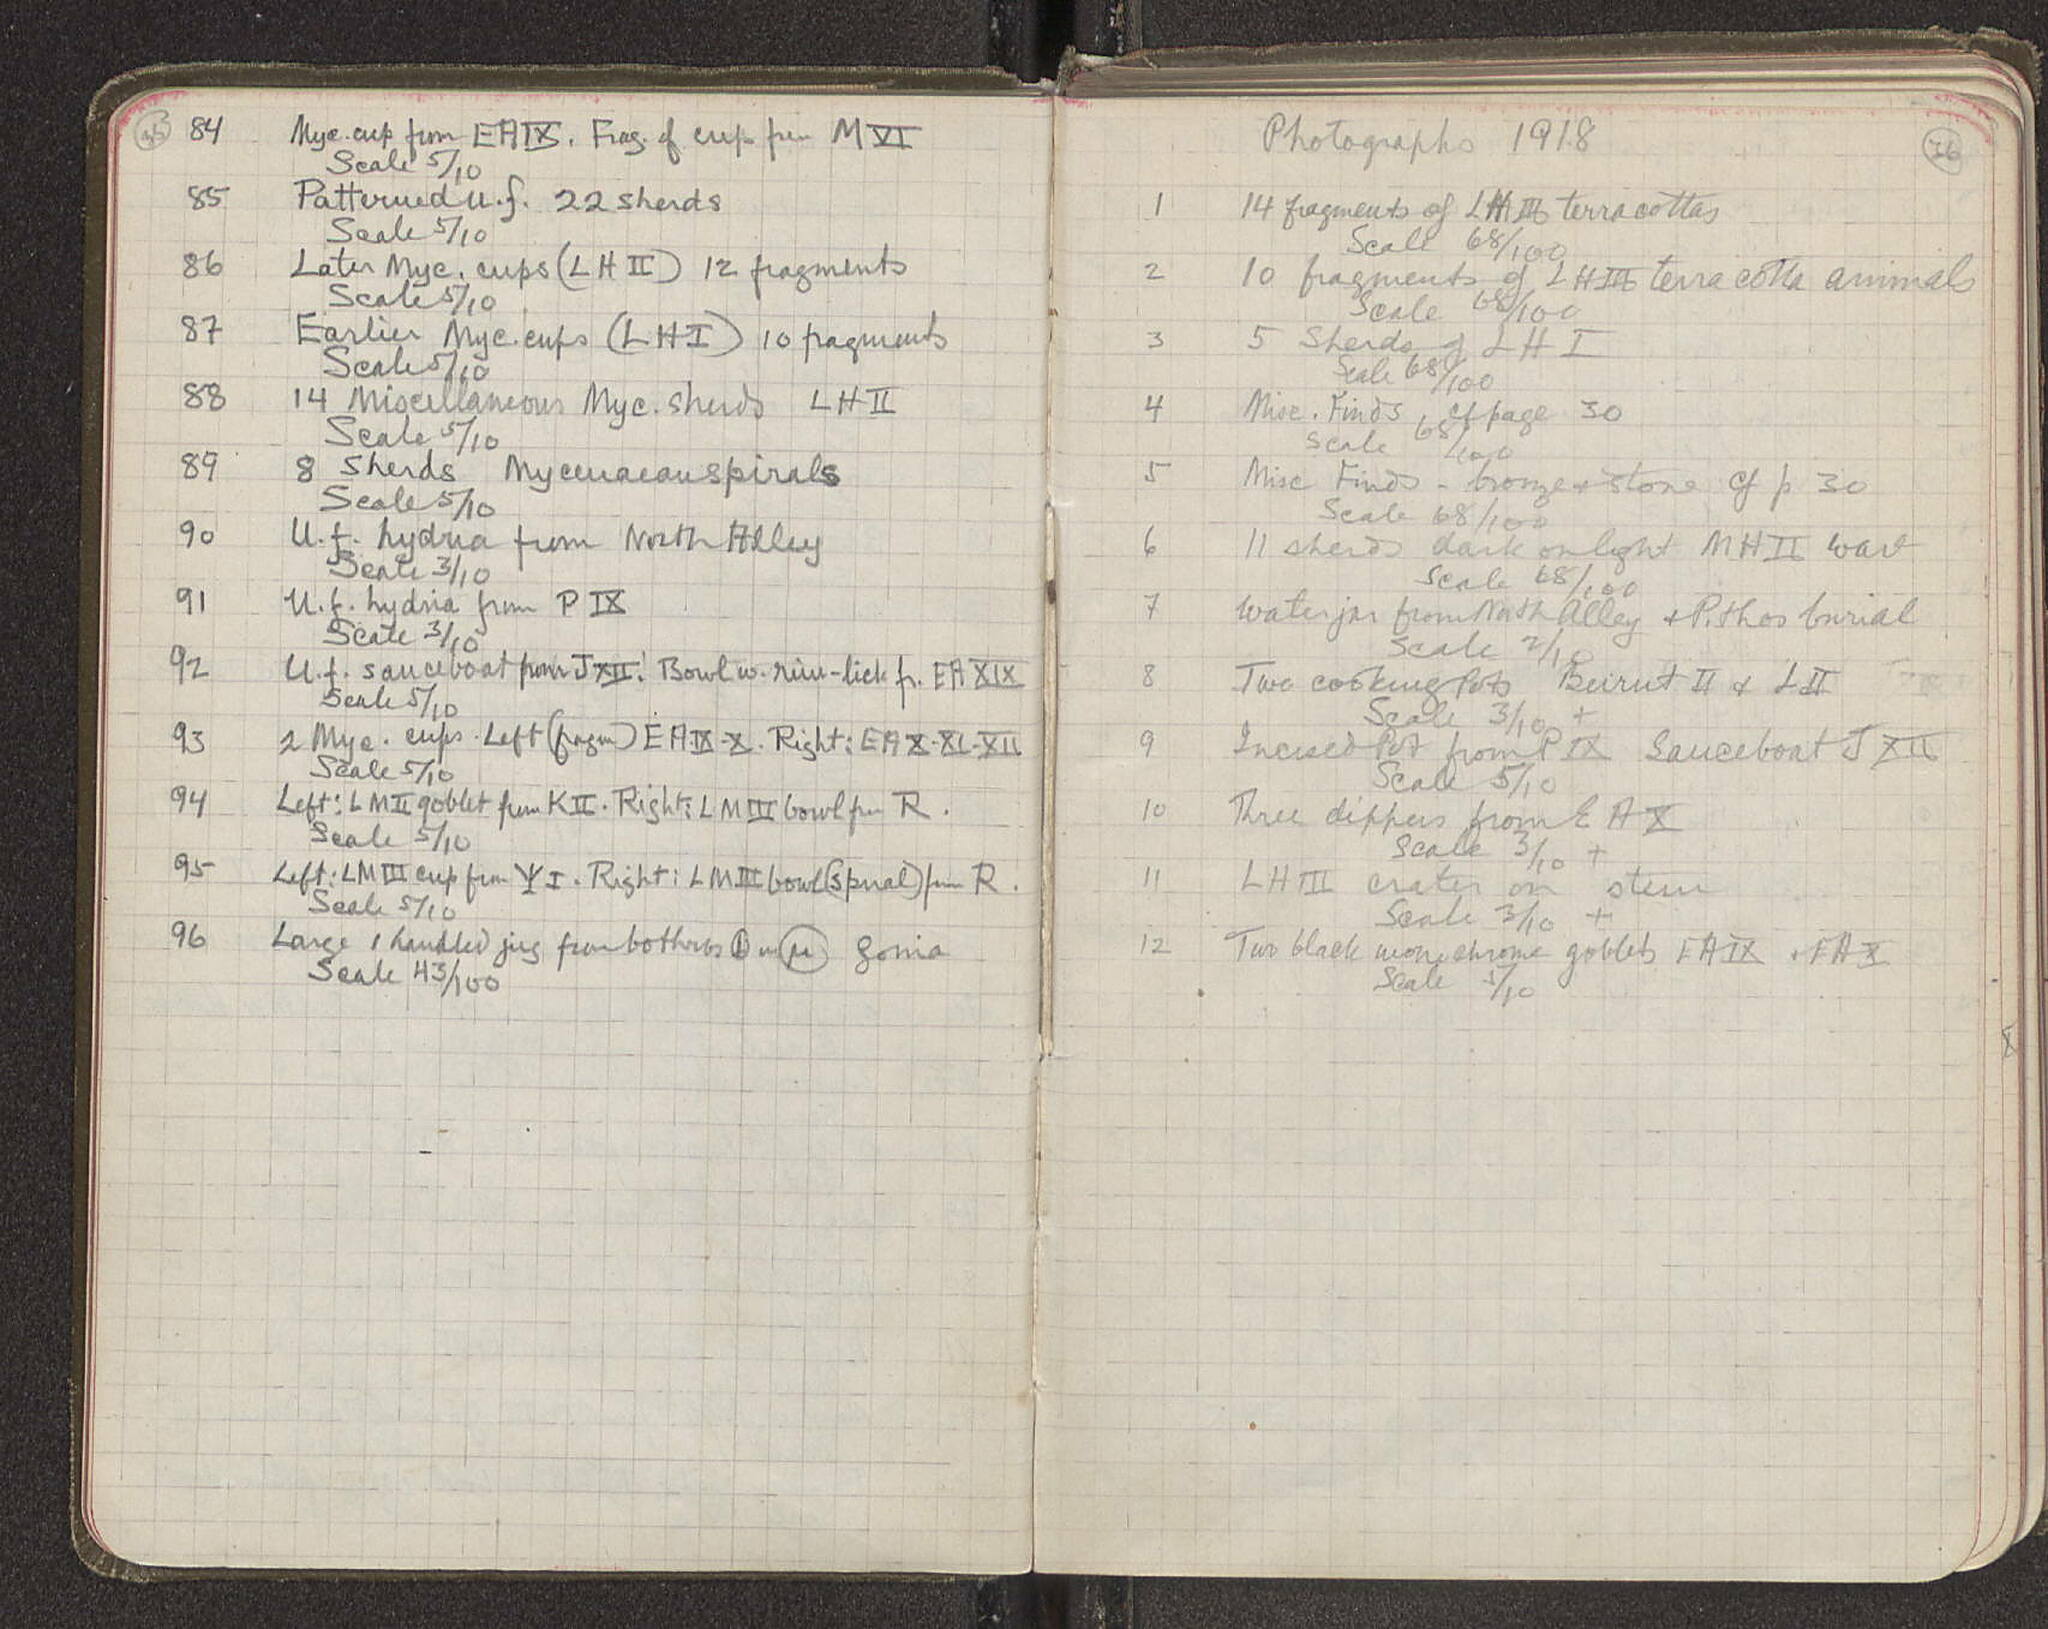 35
84 Myc. cup from EA IX. Frag. of cup from M VI
Scale 5/10
85 Patterned u.f. 22 sherds
Scale 5/10
86 Later Myc. cups (LH II) 12 fragments
Scale 5/10
87 Earlier Myc. cups (LH I) 10 fragments
Scale 5/10
88 14 Miscellaneous Myc. sherds LH II
Scale 5/10
89 8 sherds Mycenaean spirals
Scale 5/10
90 U.f. hydria from North Alley
Scale 3/10
91 U.f. hydria from P IX
Scale 3/10
92 U.f. sauceboat from J XII. Bowl w. rim-lick fr. EA XIX
Scale 5/10
93 2 Myc. cups. Left (fragm) EA IX-X. Right: EA X-XI-XII
Scale 5/10
94 Left: LM II goblet from K II. Right: LM III bowl from R.
Scale 5/10
95 Left: LM III cup from Ψ I. Right: LM III bowl (spiral) from R.
Scale 5/10
96 Large 1 handled jug from bothros in μ Gonia
Scale 43/100
36
Photographs 1918
1 14 fragments of LH III terracottas
Scale 68/100
2 10 fragments of LH III terra cotta animals
Scale 68/100
3 5 Sherds of LH I
Scale 68/100
4 Misc. Finds, cf page 30
Scale 68/100
5 Misc Finds - bronze + stone cf p 30
Scale 68/100
6 11 sherds dark on light MH II ware
Scale 68/100
7 Water jar from North Alley + Pithos burial
Scale 2/10
8 Two cooking Pots Beirut II & L II
Scale 3/10 +
9 Incised Pot from P IX Sauceboat J XII
Scale 5/10
10 Three dippers from E A X
Scale 3/10 +
11 LH III crater on stem
Scale 3/10 +
12 Two black monochrome goblets EA IX + EA X
Scale /10